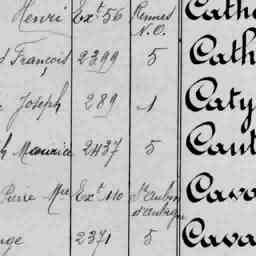 Henri Ext 56 Rennes N.O. Cath
François 2399 5 Cath
Joseph 289 1 Caty
Maurice 2437 5 Caut
Pierre Mie Ext 110 St Aubin d'Aubigné Cava
2371 5 Cava